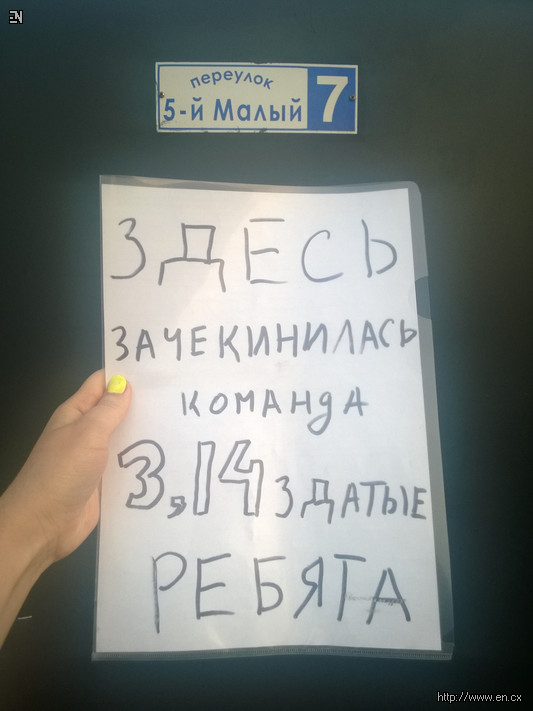 EN
переулок
5-й Малый 7
ЗДЕСЬ
ЗАЧЕКИНИЛАСЬ
КОМАНДА
3,14ЗДАТЫЕ
РЕБЯТА
http://www.en.cx